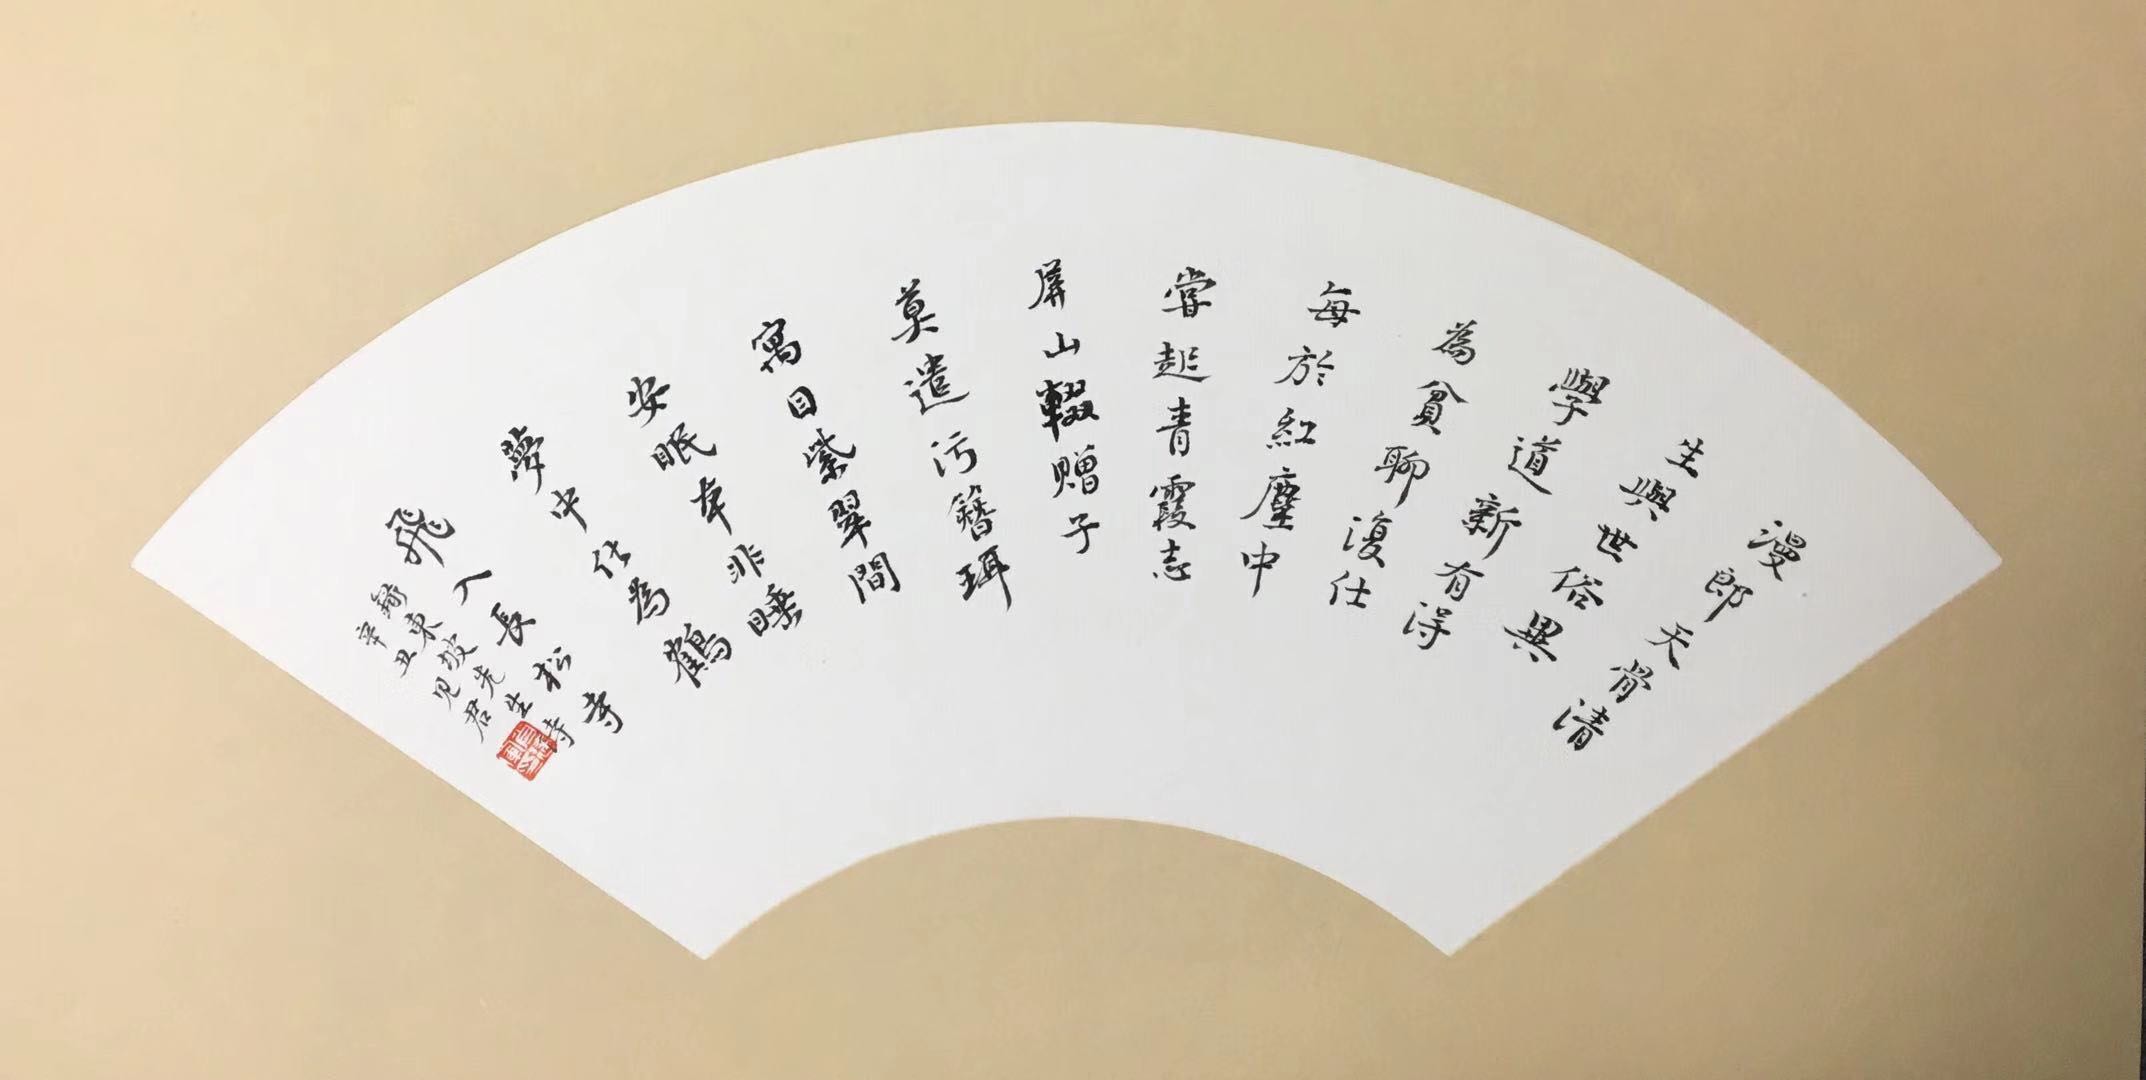 漫郎天骨清
生與世俗異
學道新有得
為貧聊復仕
每於紅塵中
嘗起青霞志
屏山輟贈子
莫遣污簪珥
寓目紫翠間
安眠本非睡
夢中化為鶴
飛入長松寺
錄東坡先生詩
辛丑 君